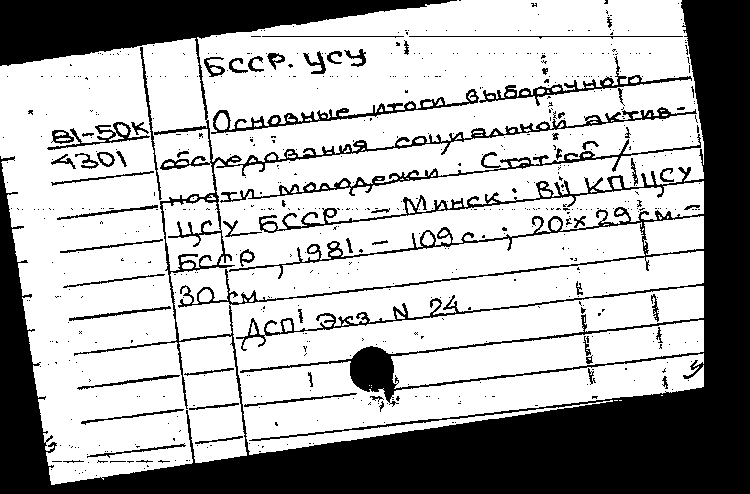 БССР. ЦСУ
81-50К
4301
Основные итоги выборочного
обследования социальной актив-
ности молодежи : Стат.сб /
ЦСУ БССР. – Минск : ВЦ КП ЦСУ
БССР, 1981. – 109 с. ; 20 × 29 см. –
30 см.
ДСП! Экз. N 24.